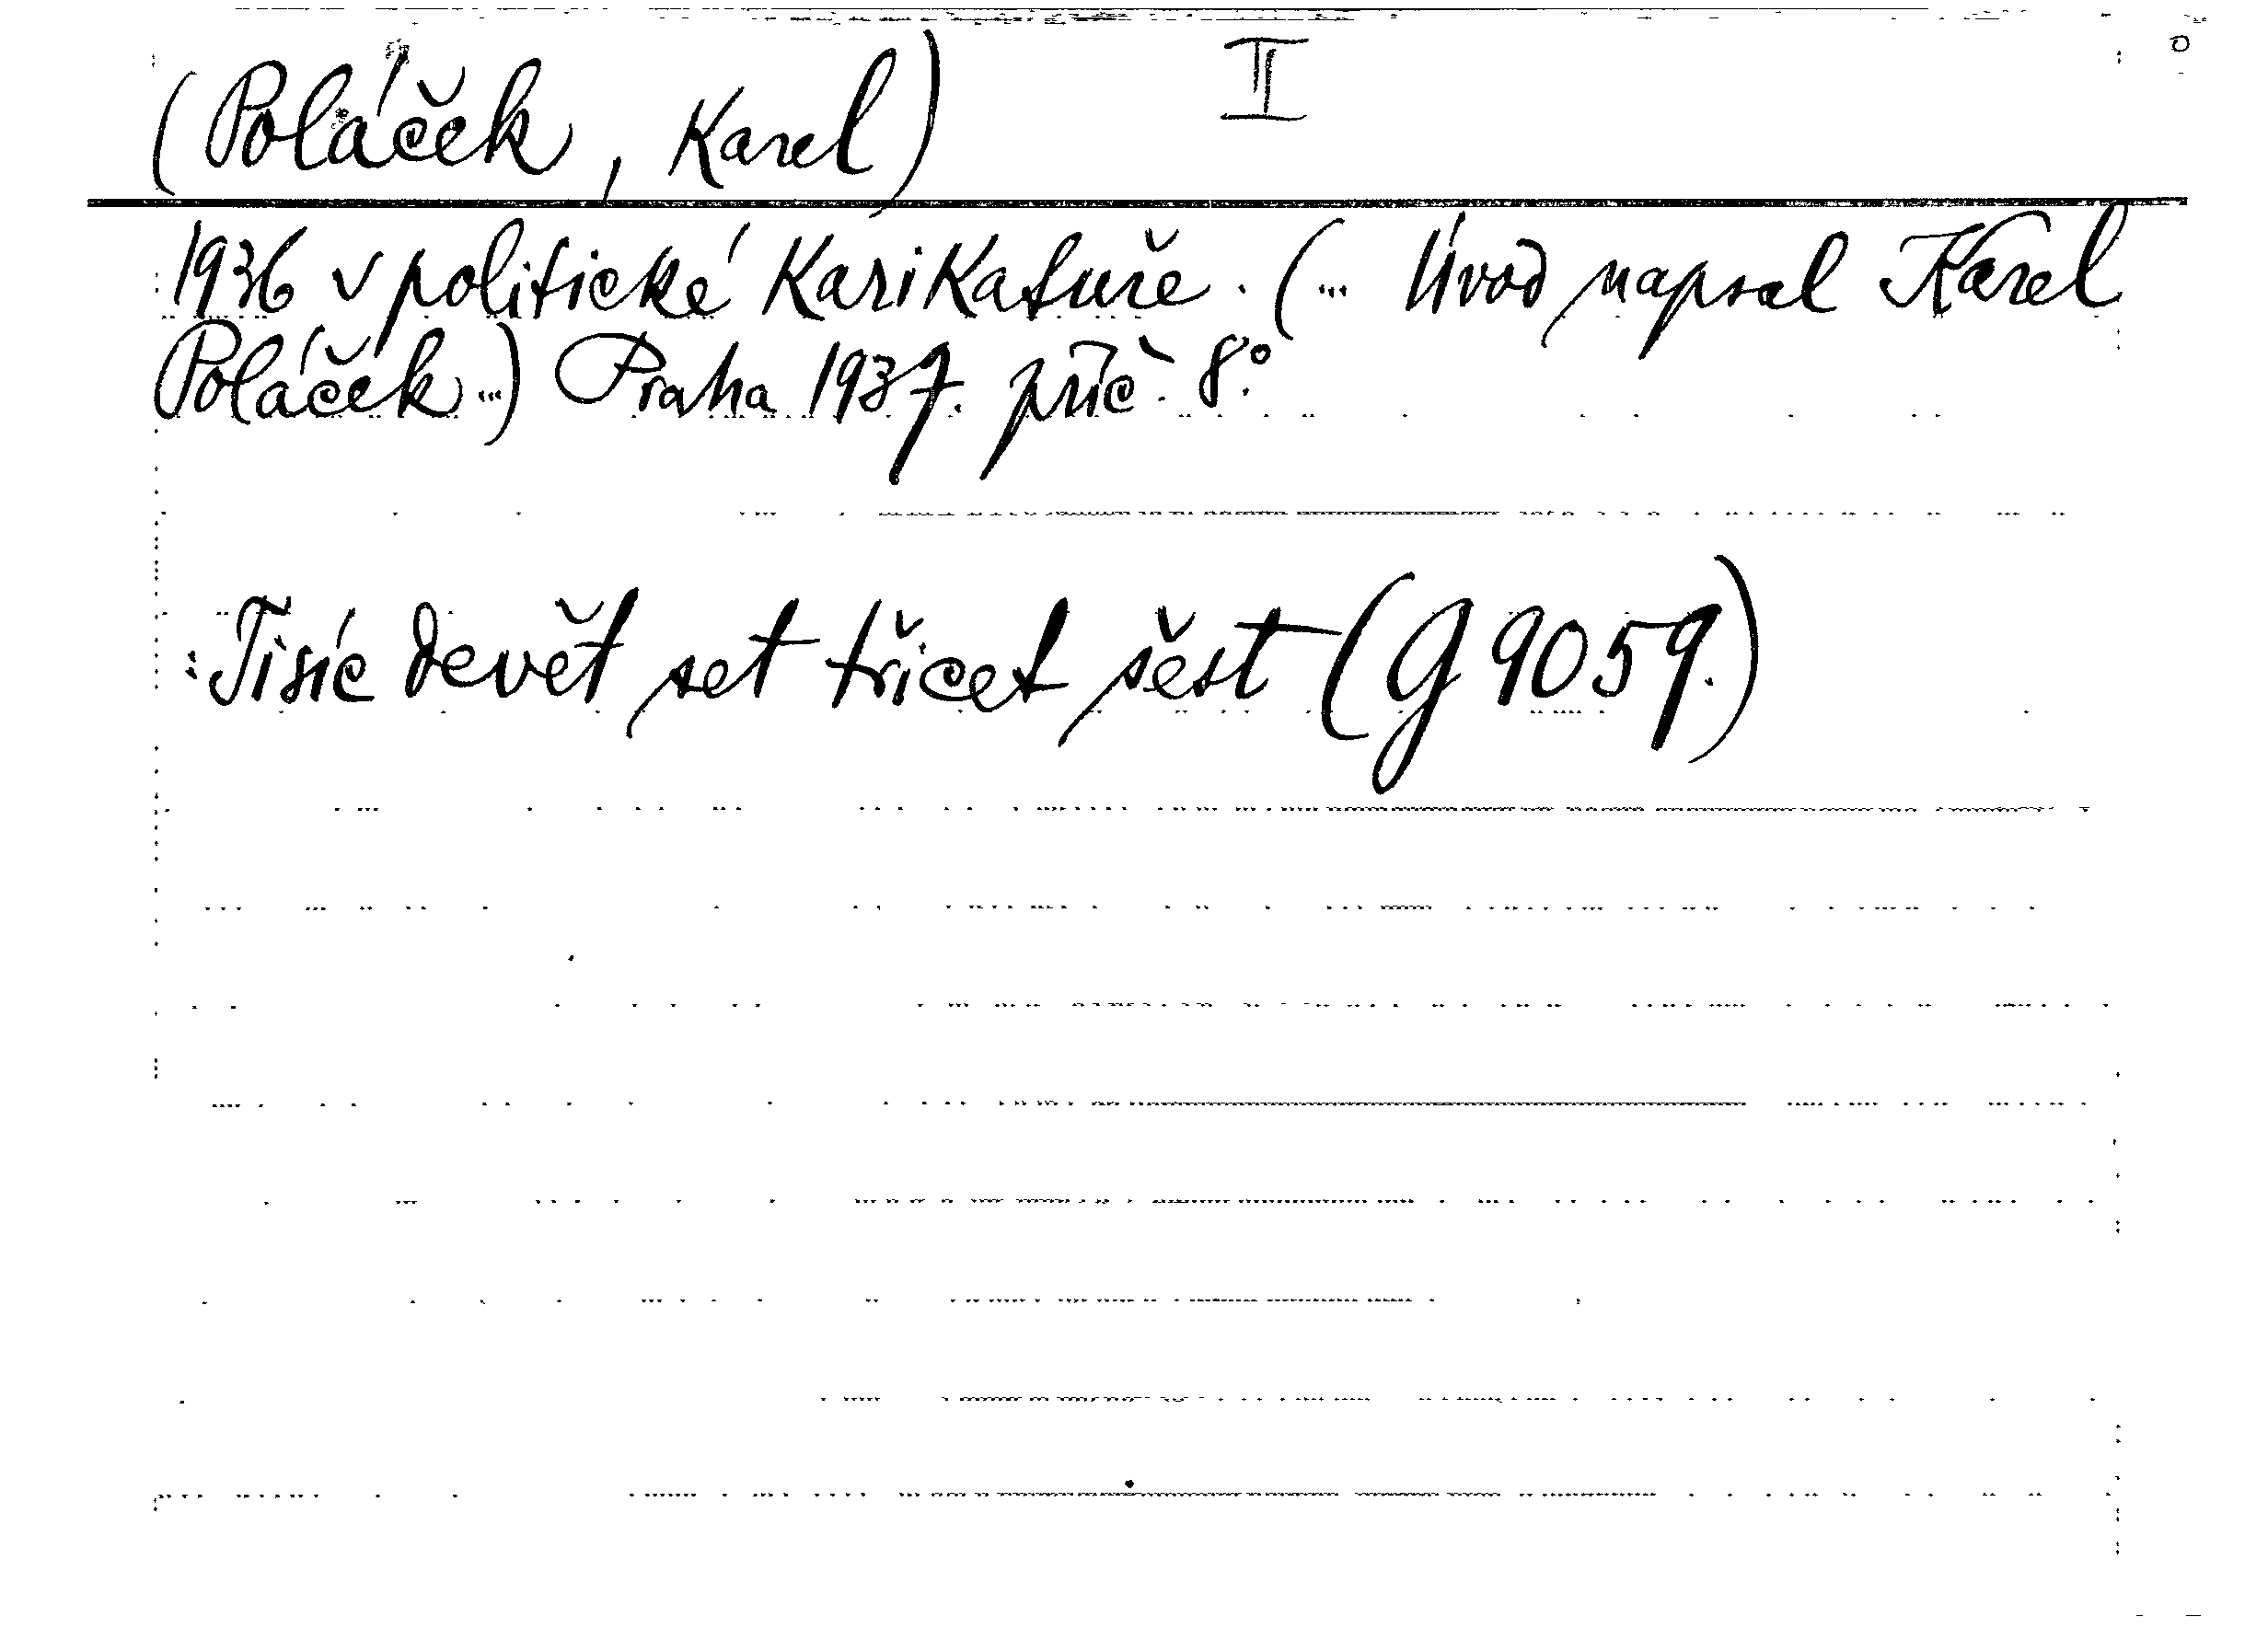 (Poláček, Karel) II
1936 v politické karikatuře. (... Úvod napsal Karel
Poláček...) Praha 1937. příč. 8.°
: Tisíc devět set třicet šest (G 9059.)